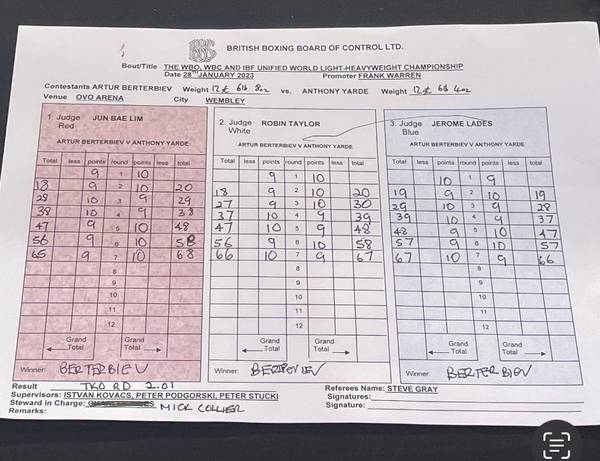 BRITISH BOXING BOARD OF CONTROL LTD.
Bout/Title THE WBO, WBC AND IBF UNIFIED WORLD LIGHT-HEAVYWEIGHT CHAMPIONSHIP
Date 28TH JANUARY 2023 Promoter FRANK WARREN
Contestants ARTUR BERTERBIEV Weight 12st 6lb 8oz vs. ANTHONY YARDE Weight 12st 6lb 4oz
Venue OVO ARENA City WEMBLEY
1. Judge JUN BAE LIM
Red
ARTUR BERTERBIEV V ANTHONY YARDE
Total less points round points less total
9 1 10
18 9 2 10 20
28 10 3 9 29
38 10 4 9 38
47 9 5 10 48
56 9 6 10 58
65 9 7 10 68
8
9
10
11
12
Grand Total Grand Total
Winner: BERTERBIEV
2. Judge ROBIN TAYLOR
White
ARTUR BERTERBIEV V ANTHONY YARDE
Total less points round points less total
9 1 10
18 9 2 10 20
27 9 3 10 30
37 10 4 9 39
47 10 5 9 48
56 9 6 10 58
66 10 7 9 67
8
9
10
11
12
Grand Total Grand Total
Winner:
3. Judge JEROME LADES
Blue
ARTUR BERTERBIEV V ANTHONY YARDE
Total less points round points less total
10 1 9
19 9 2 10 19
29 10 3 9 28
39 10 4 9 37
48 9 5 10 47
57 9 6 10 57
67 10 7 9 66
8
9
10
11
12
Grand Total Grand Total
Winner: BERTERBIEV
Result TKO RD 2.01
Supervisors: ISTVAN KOVACS, PETER PODGORSKI, PETER STUCKI
Steward in Charge: MICK COLLIER
Remarks:
Referees Name: STEVE GRAY
Signatures:
Signature: